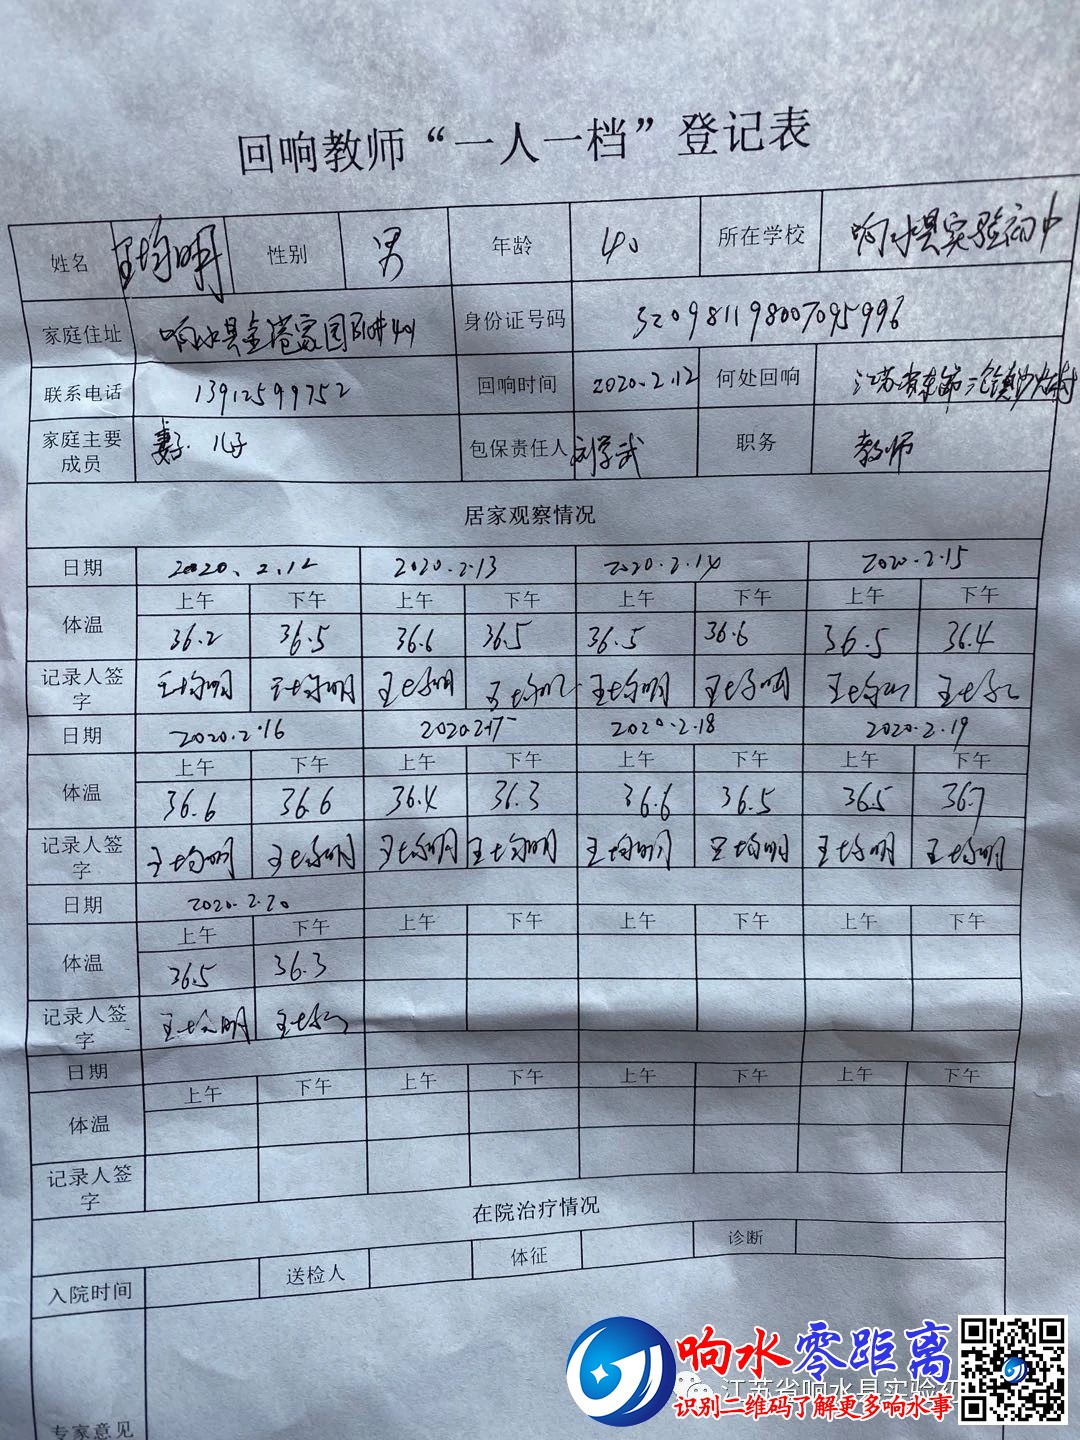 回响教师“一人一档”登记表
姓名 王均明 性别 男 年龄 40 所在学校 响水县实验初中
家庭住址 响水县金港家园 401 身份证号码 320981198007095996
联系电话 13912599752 回响时间 2020.2.12 何处回响 江苏省东
家庭主要成员 妻子、儿子 包保责任人 刘学武 职务 教师
居家观察情况
日期 2020.2.12 2020.2.13 2020.2.14 2020.2.15
上午 下午 上午 下午 上午 下午 上午 下午
体温 36.2 36.5 36.6 36.5 36.5 36.6 36.5 36.4
记录人签字 王均明 王均明 王均明 王均明 王均明 王均明 王均明 王均明
日期 2020.2.16 2020.2.17 2020.2.18 2020.2.19
上午 下午 上午 下午 上午 下午 上午 下午
体温 36.6 36.6 36.4 36.3 36.6 36.5 36.5 36.7
记录人签字 王均明 王均明 王均明 王均明 王均明 王均明 王均明 王均明
日期 2020.2.20
上午 下午 上午 下午 上午 下午 上午 下午
体温 36.5 36.3
记录人签字 王均明 王均明
日期
上午 下午 上午 下午 上午 下午 上午 下午
体温
记录人签字
在院治疗情况
入院时间 送检人 体征 诊断
专家意见
响水零距离
江苏省响水县实验
识别二维码了解更多响水事